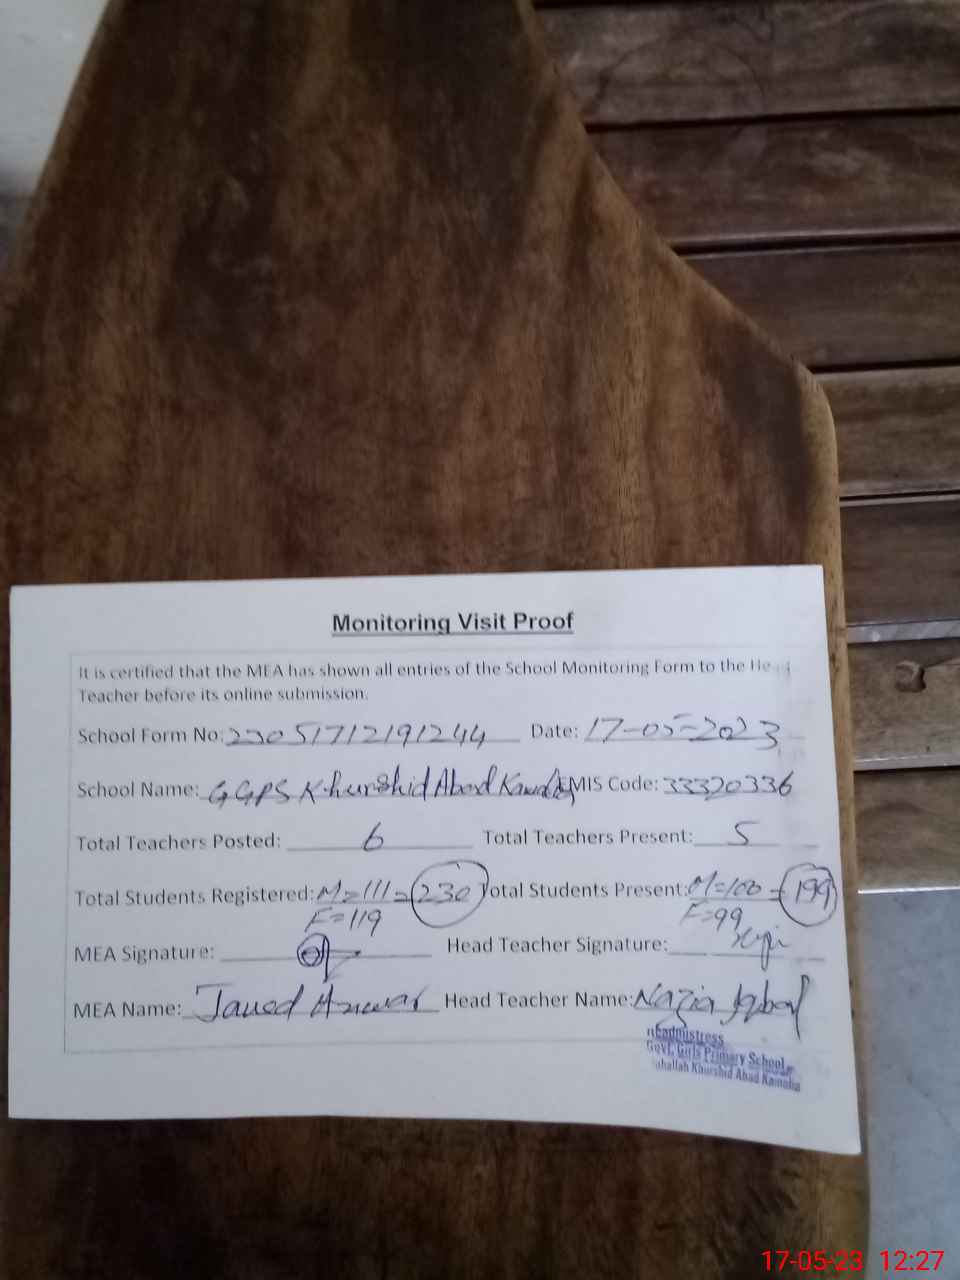 Monitoring Visit Proof
It is certified that the MEA has shown all entries of the School Monitoring Form to the Head
Teacher before its online submission.
School Form No: 23051712191244 Date: 17-05-2023
School Name: GGPS Khurshid Abad Kamalia EMIS Code: 33320336
Total Teachers Posted: 6 Total Teachers Present: 5
Total Students Registered: M=111=230 Total Students Present: M=100=199
F=119 F=99
MEA Signature: Head Teacher Signature:
MEA Name: Javed Anwar Head Teacher Name: Nazia Iqbal
Headmistress
Govt. Girls Primary School
Mohallah Khurshid Abad Kamalia
17-05-23 12:27